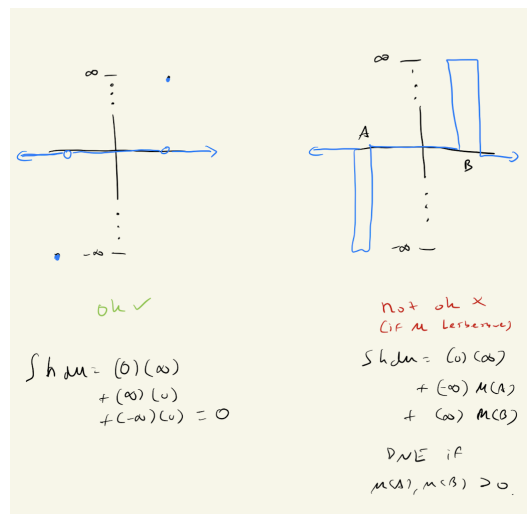 ∞
-∞
ok ✓
∫ h dμ = (0)(∞)
+ (∞)(0)
+ (-∞)(0) = 0
∞
A
B
-∞
not ok ×
(if μ Lesbesgue)
∫ h dμ = (0)(∞)
+ (-∞) μ(A)
+ (∞) μ(B)
DNE if
μ(A), μ(B) > 0.